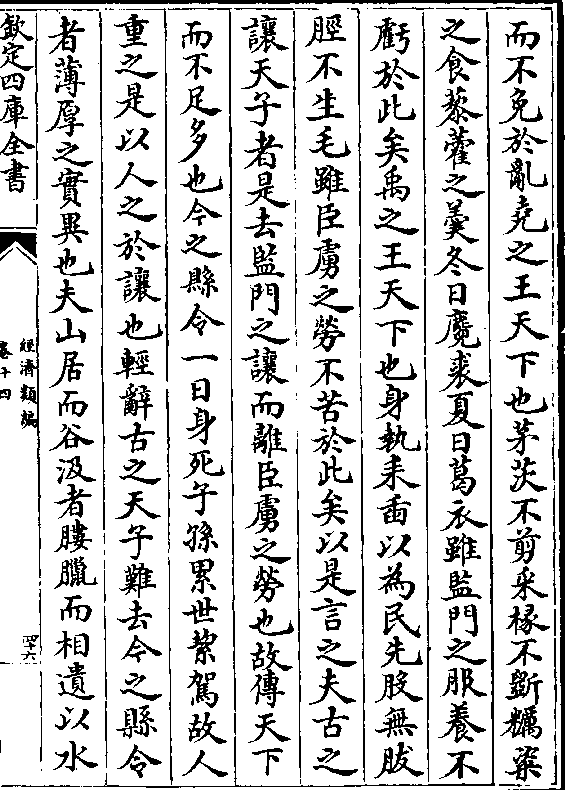 而不免於亂堯之王天下也茅茨不剪采椽不斵糲粢
之食藜藿之羮冬日麑裘夏日葛衣雖監門之服養不
虧於此矣禹之王天下也身執耒臿以為民先股無胈
脛不生毛雖臣虜之勞不苦於此矣以是言之夫古之
讓天子者是去監門之讓而離臣虜之勞也故傳天下
而不足多也今之縣令一日身死子孫累世絜駕故人
重之是以人之於讓也輕辭古之天子難去今之縣令
者薄厚之實異也夫山居而谷汲者膢臘而相遺以水
欽定四庫全書
經濟類編
卷十四
四十六